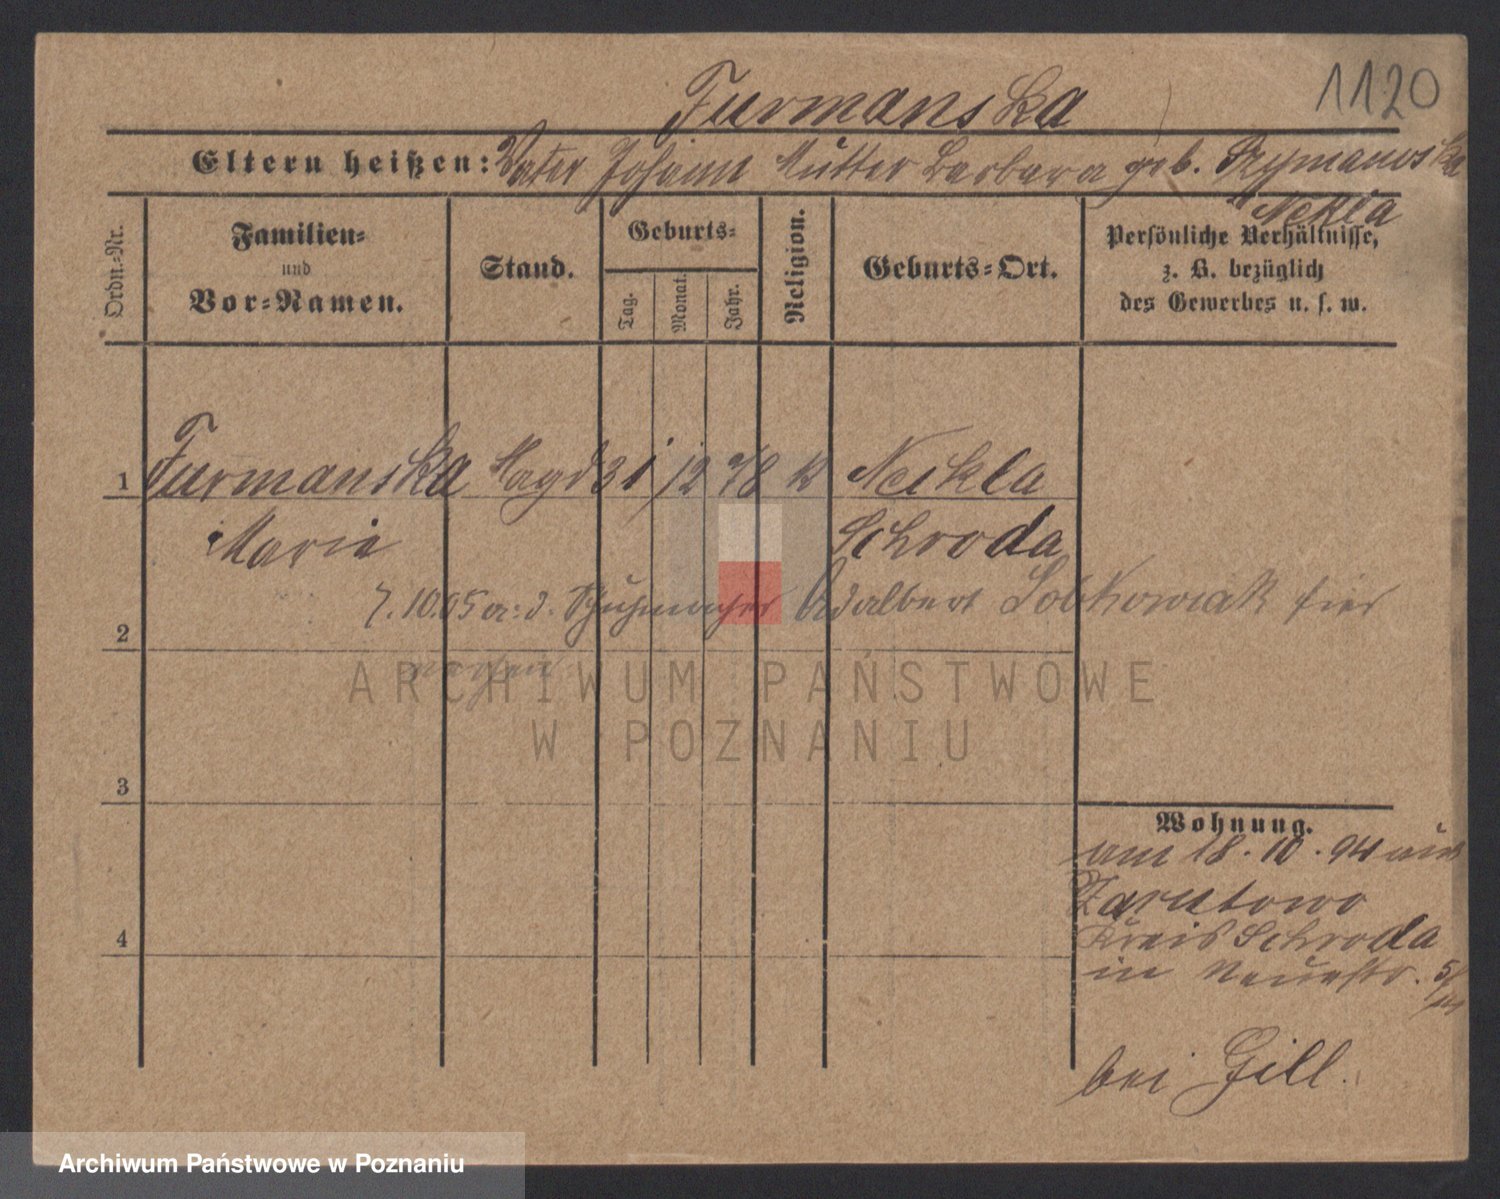 1120
Furmanska
Eltern heißen: Vater Johann Mutter Barbara geb. Szymanowska
Nekla
Ordn.-Nr.
Familien-
und
Vor-Namen.
Stand.
Geburts-
Tag.
Monat.
Jahr.
Religion.
Geburts-Ort.
Persönliche Verhältnisse,
z. B. bezüglich
des Gewerbes u. s. w.
1 Furmanska Magd 31 12 78 k Neikla
Marie Schroda
7.10.05 a: d. Schuhmacher Adalbert Sobkowiak hier
2
ARCHIWUM PAŃSTWOWE
W POZNANIU
3
Wohnung.
am 18.10.94 aus
Kreis Schroda
4
in Neuestr. 5/
bei Gill.
Archiwum Państwowe w Poznaniu